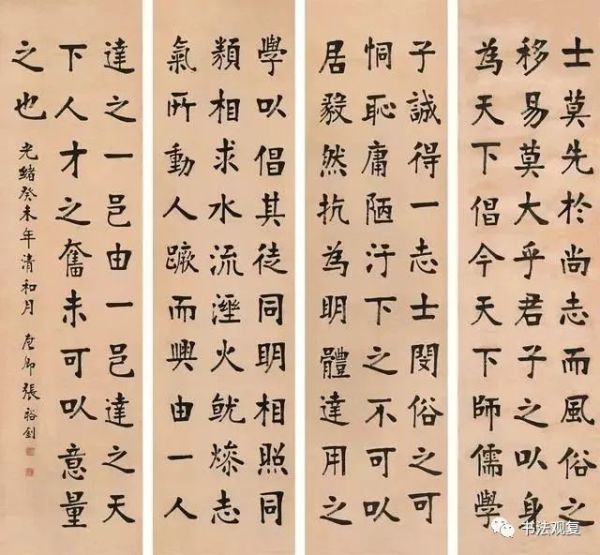 士莫先於尚志而風俗之
移易莫大乎君子之以身
為天下倡今天下師儒學
子誠得一志士閔俗之可
恫恥庸陋汙下之不可以
居毅然抗為明體達用之
學以倡其徒同明相照同
類相求水流溼火就燥志
氣所動人蹶而興由一人
達之一邑由一邑達之天
下人才之奮未可以意量
之也
光緒癸未年清和月 廉卿張裕釗
书法观复